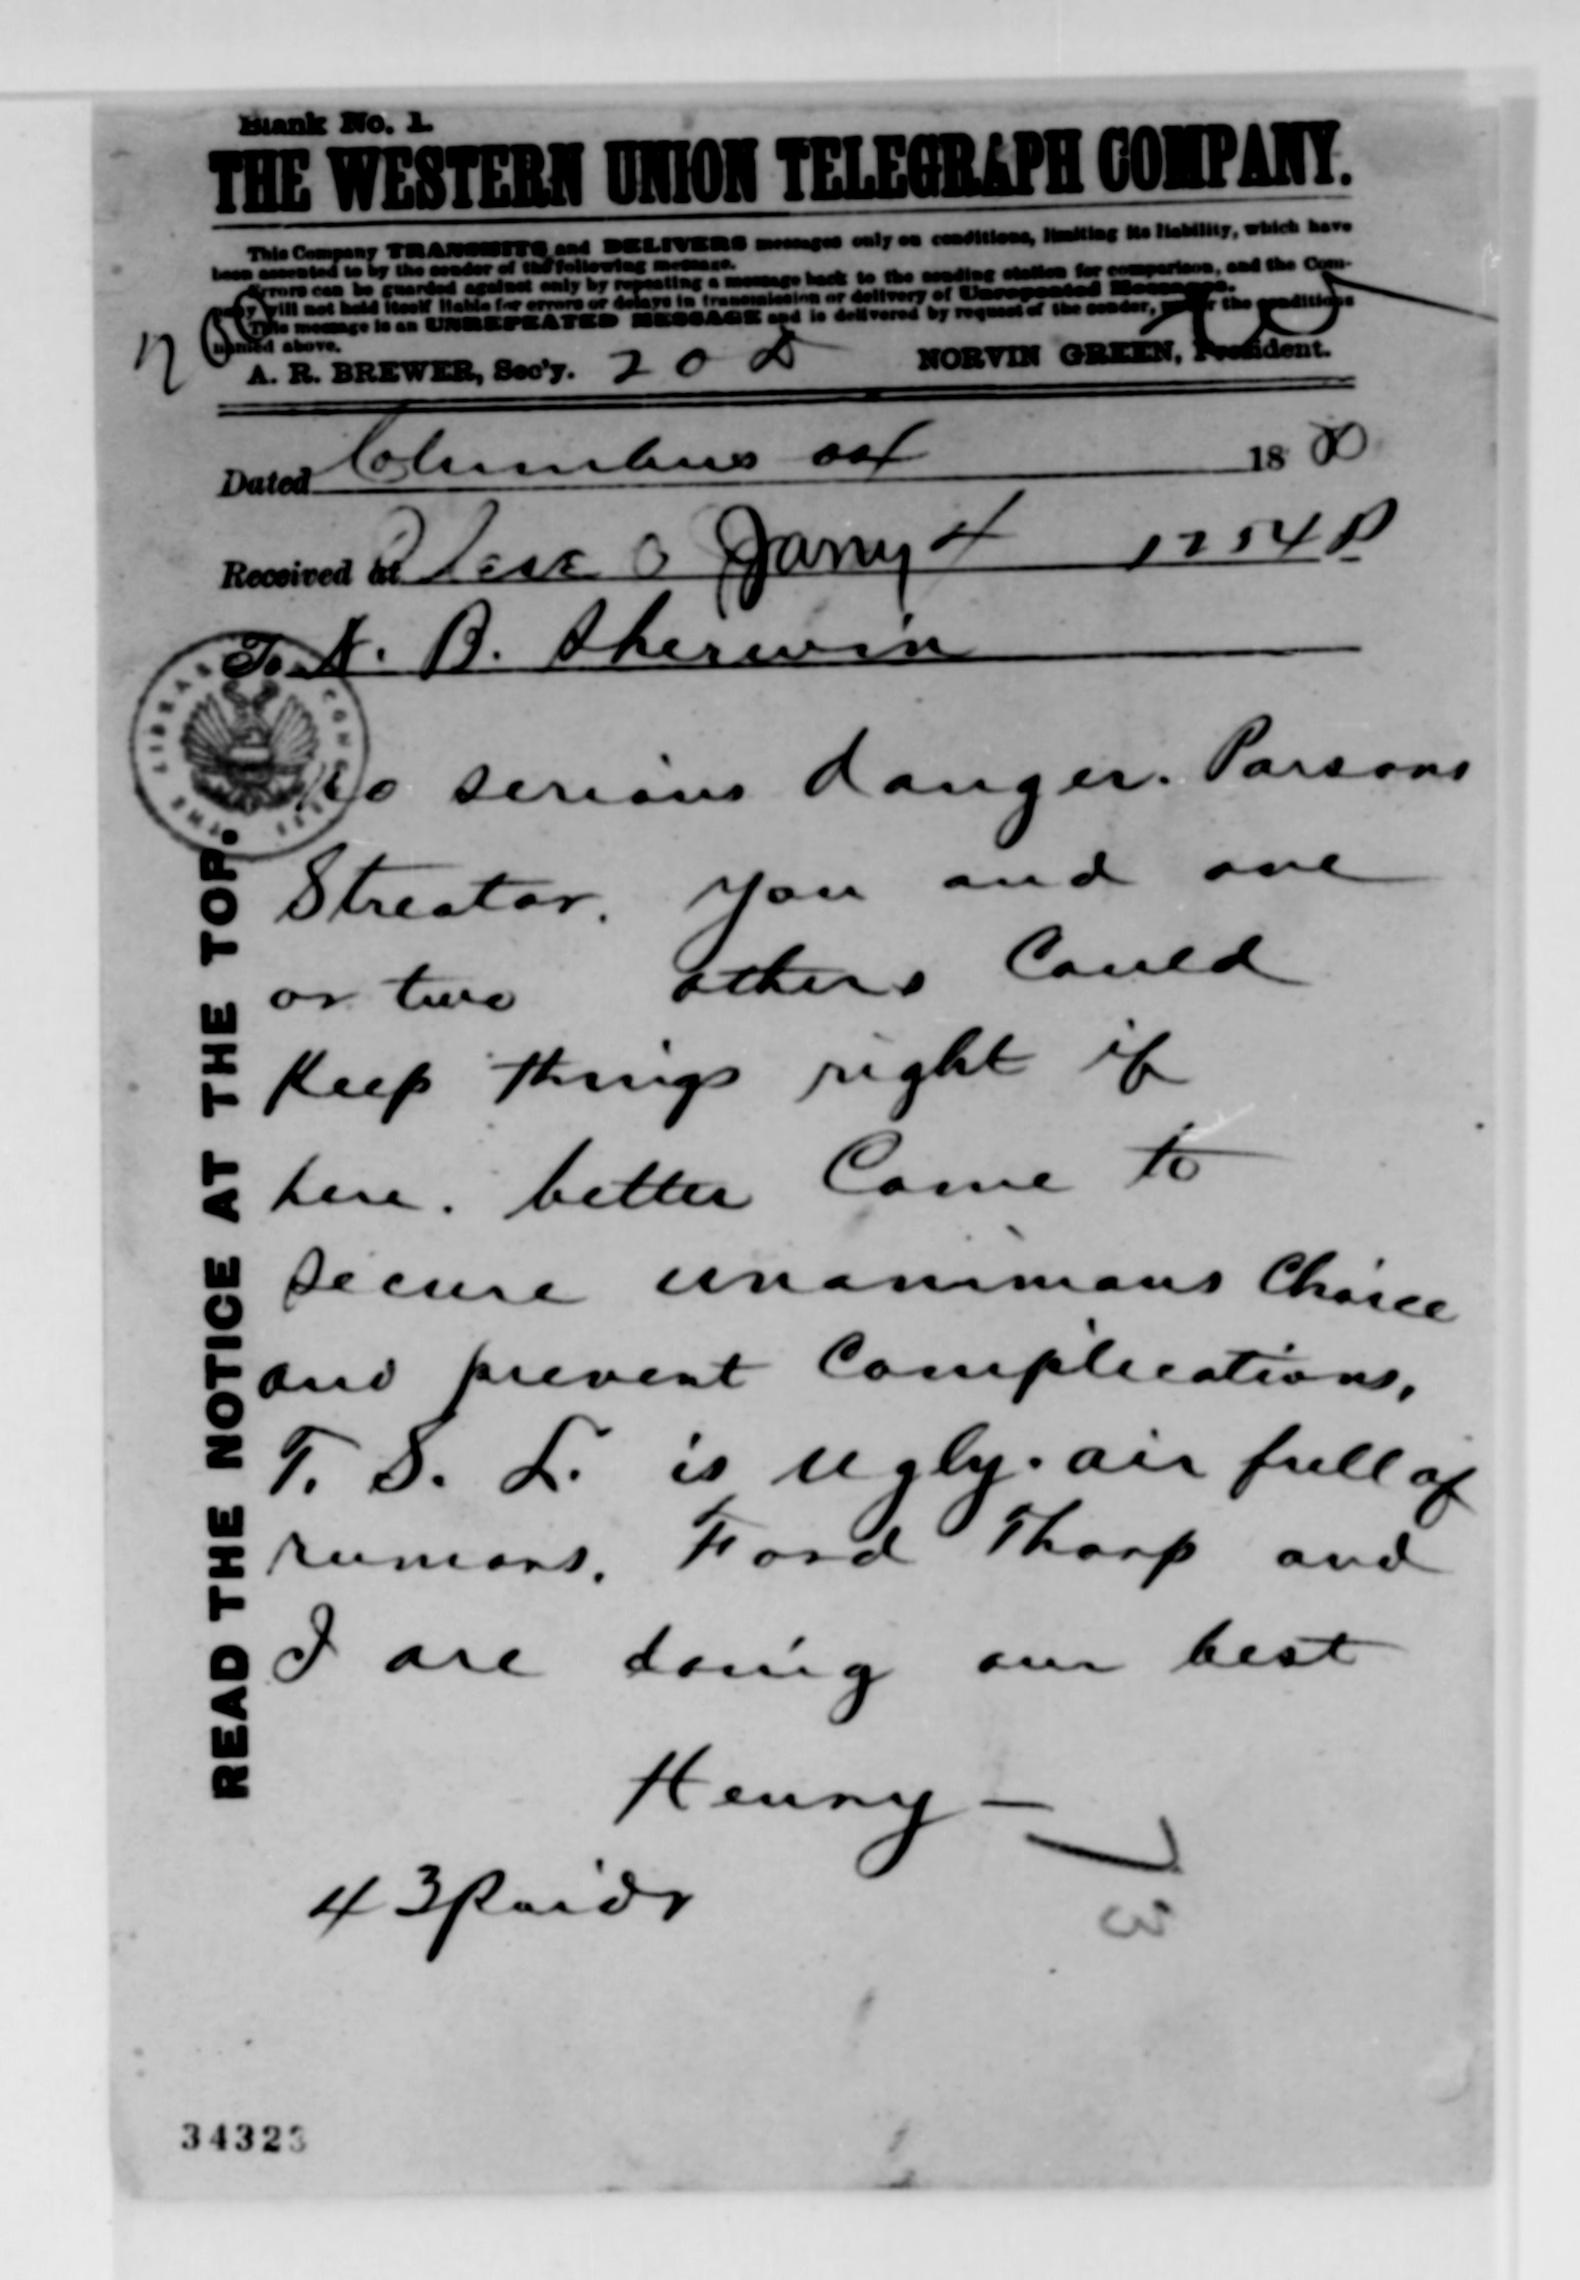 Blank No. 1.
THE WESTERN UNION TELEGRAPH COMPANY.
This Company TRANSMITS and DELIVERS messages only on conditions, limiting its liability, which have
been assented to by the sender of the following message.
Errors can be guarded against only by repeating a message back to the sending station for comparison, and the Com-
pany will not hold itself liable for errors or delays in transmission or delivery of Unrepeated Messages.
This message is an UNREPEATED MESSAGE and is delivered by request of the sender, under the conditions
named above.
A. R. BREWER, Sec'y. 20 NORVIN GREEN, President.
Dated Columbus 1880
Received at Cleve O Jany 4 1254 P
To N. B. Sherwin
No serious danger. Parsons
Streator. you and one
or two others Could
Keep things right if
here. better Come to
secure unanimous Choice
and prevent Complications,
T. S. L. is ugly. air full of
rumors. Ford Tharp and
I are doing our best
Henry -
43 Paid
READ THE NOTICE AT THE TOP.
34323